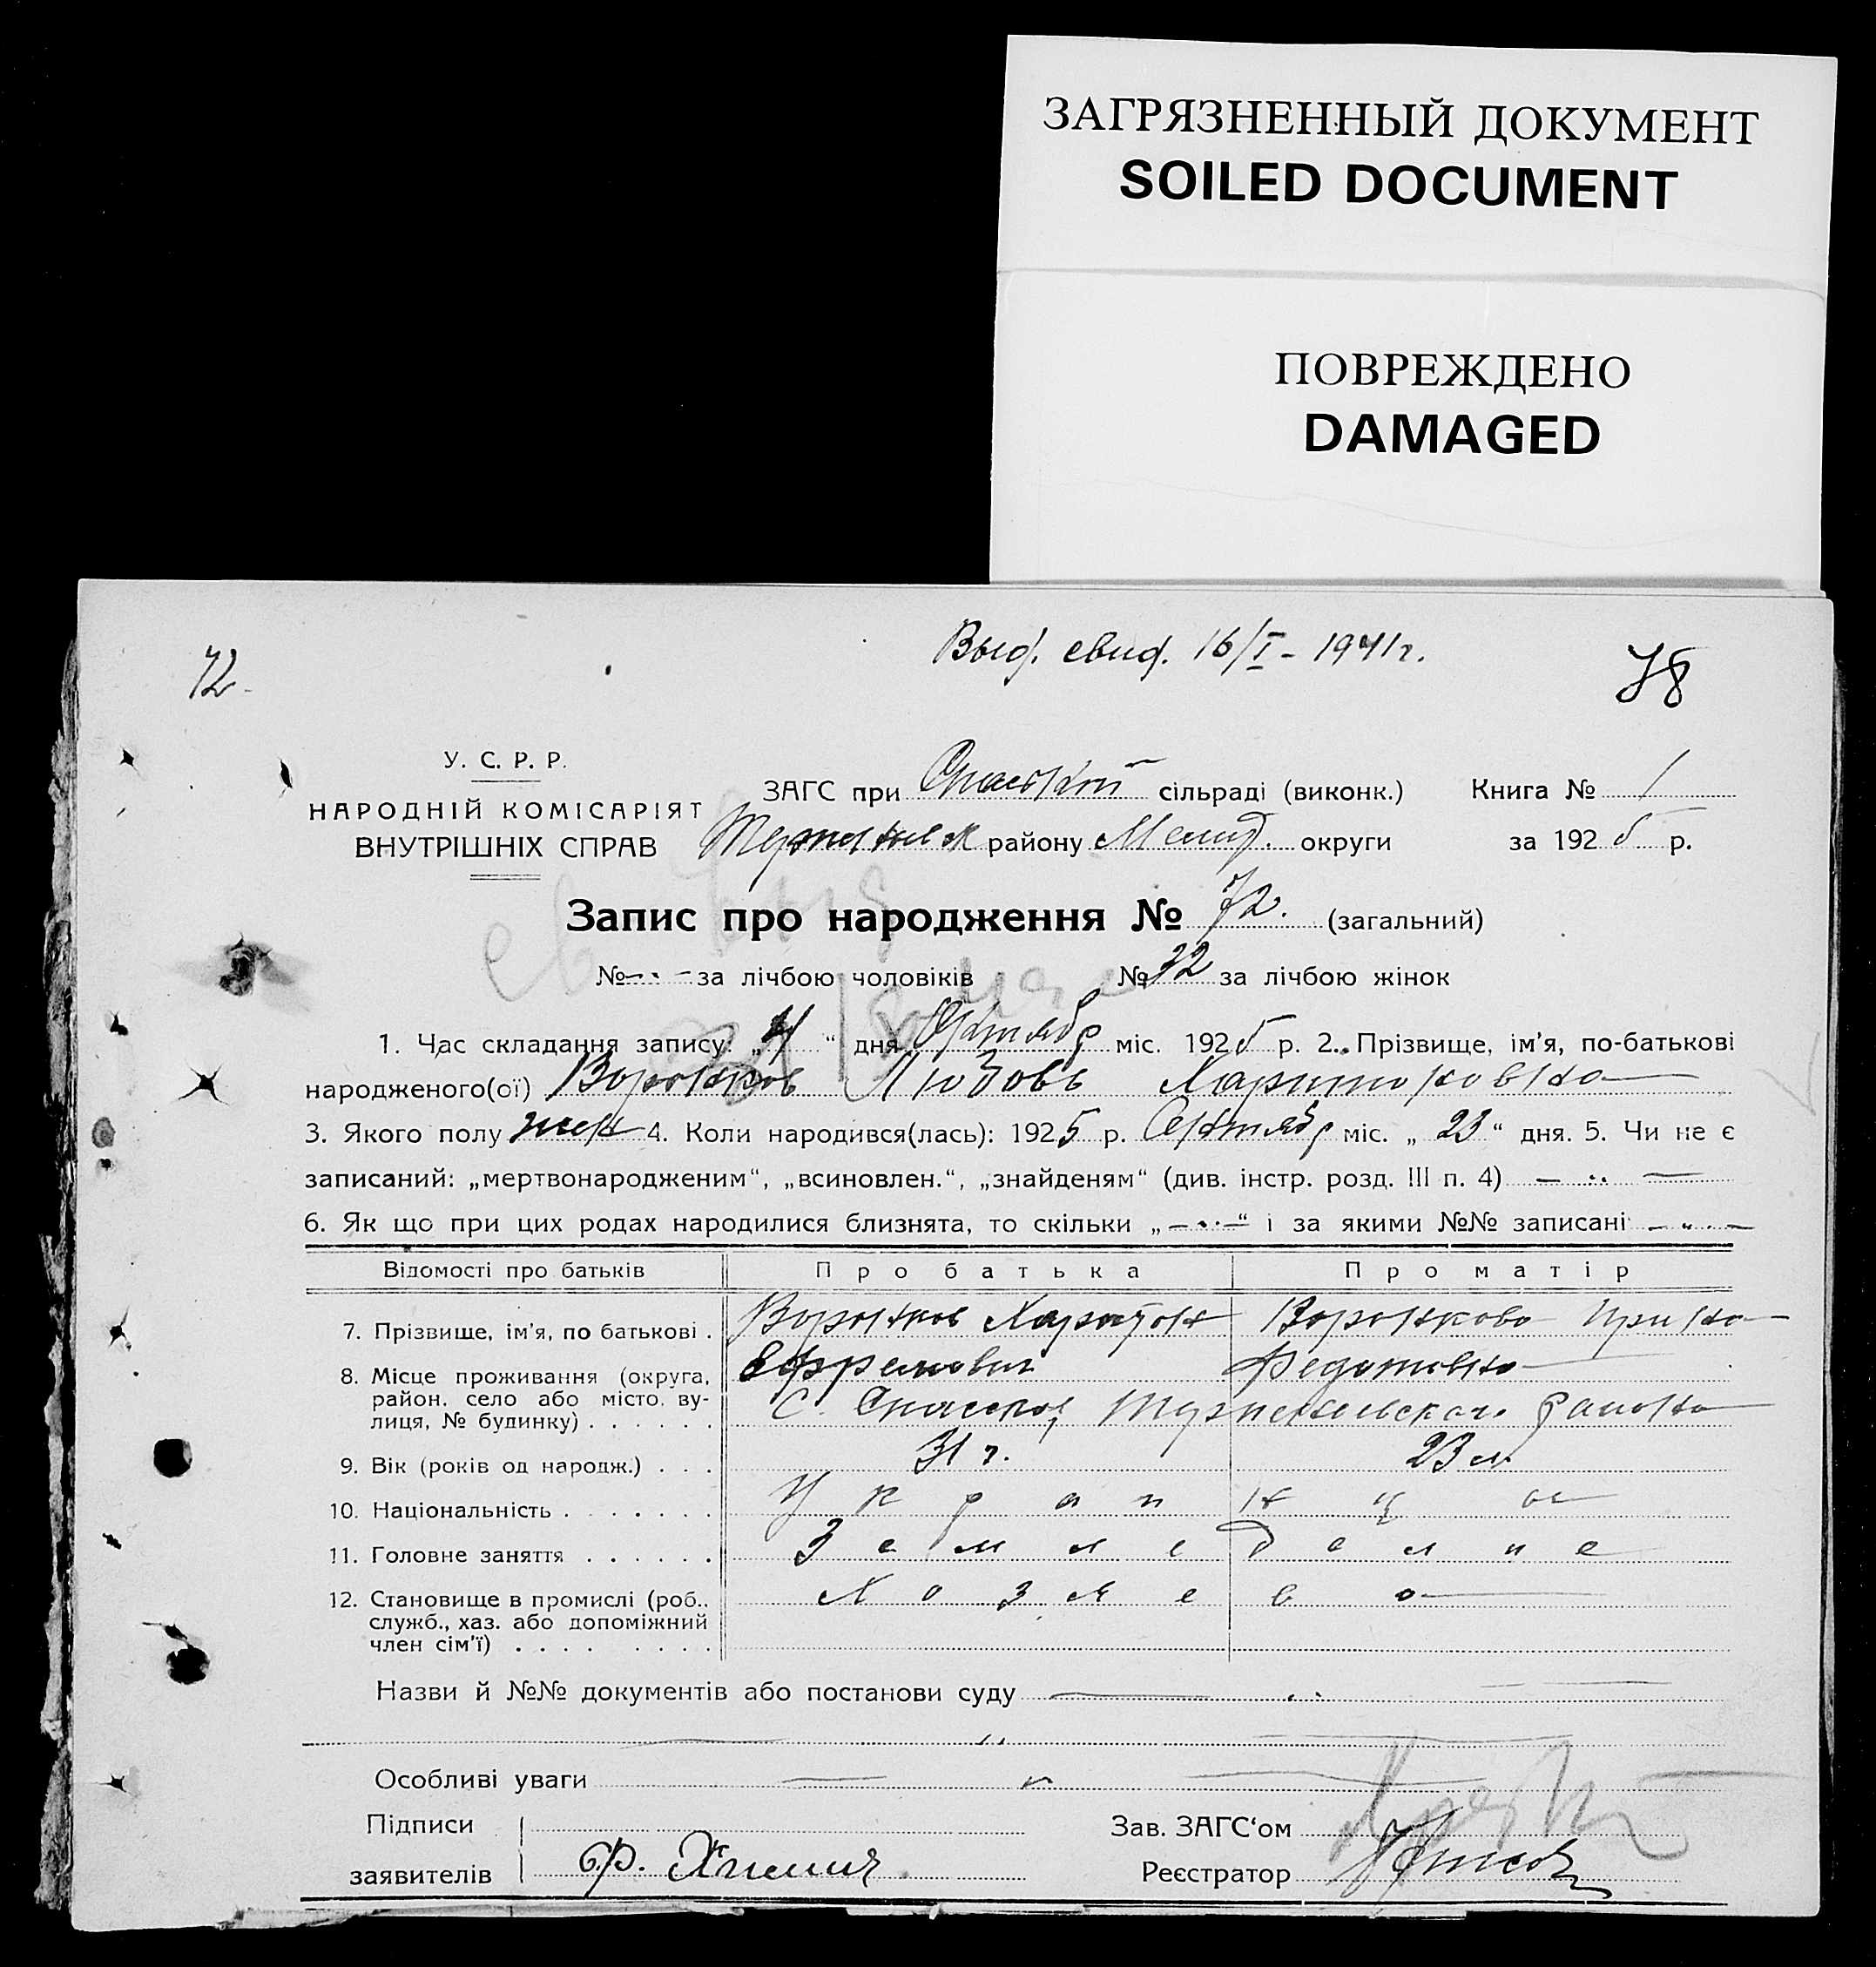 ЗАГРЯЗНЕННЫЙ ДОКУМЕНТ
SOILED DOCUMENT
ПОВРЕЖДЕНО
DAMAGED
Выд. свид. 16/I - 1941 г.
72.
78
У. С. Р. Р.
НАРОДНІЙ КОМІСАРІЯТ
ВНУТРІШНІХ СПРАВ
ЗАГС при Спаской сільраді (виконк.) Книга № 1
району Мелит. округи за 1925 р.
Запис про народження № 72. (загальний)
№ - „ - за лічбою чоловіків № 32 за лічбою жінок
1. Час складання запису: „ “ дня Октябр міс. 1925 р. 2. Прізвище, ім'я, по-батькові
народженого(ої) Воронков Любовь Харитоновна
3. Якого полу жен 4. Коли народився(лась): 1925 р. міс. „ 23 “ дня. 5. Чи не є
записаний: „мертвонародженим“, „всиновлен.“, „знайденям“ (див. інстр. розд. III п. 4) — „ —
6. Як що при цих родах народилися близнята, то скільки „ — „ — “ і за якими №№ записані — „ —
Відомості про батьків Про батька Про матір
7. Прізвище, ім'я, по батькові . Воронков Харитон Воронкова Ирина
Ефремович Федотовна
8. Місце проживання (округа,
район, село або місто, ву-
лиця, № будинку) . . . . . . С. Спаское района
9. Вік (років од народж.) . . . 31 г. 23 л.
10. Національність . . . . . . . Украинца
11. Головне заняття . . . . . . Земледелие
12. Становище в промислі (роб.,
служб., хаз. або допоміжний
член сім'ї) . . . . . . . . Хозяева
Назви й №№ документів або постанови суду — „ —
— „ —
Особливі уваги — „ —
Підписи
заявителів Ф.
Зав. ЗАГС‘ом
Реєстратор